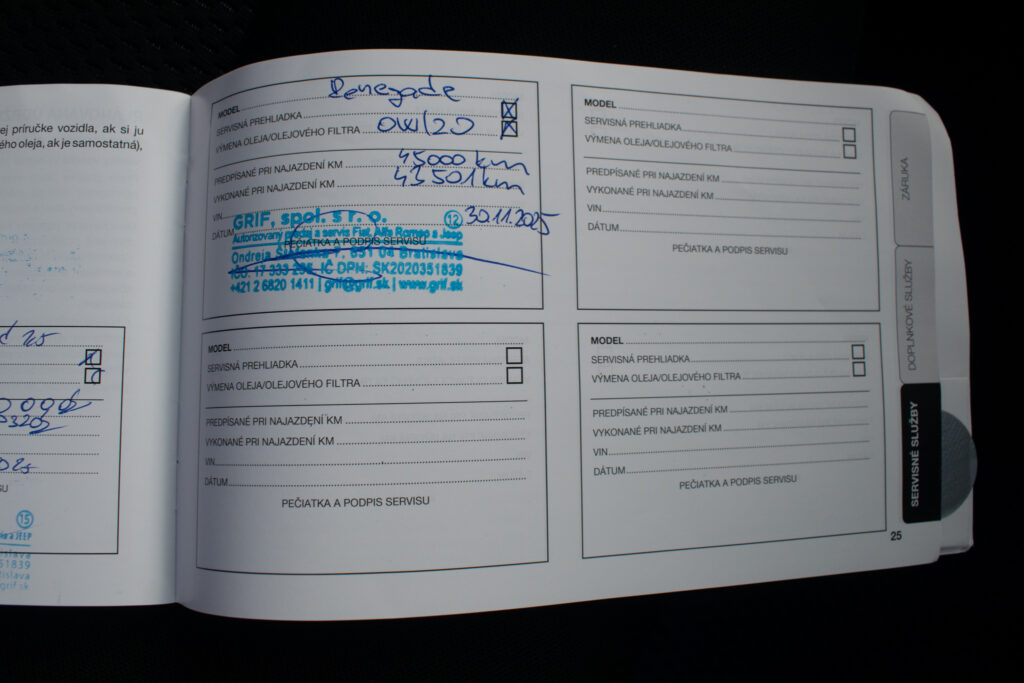 ej príručke vozidla, ak si ju
ého oleja, ak je samostatná),
15
25
MODEL Renegade
SERVISNÁ PREHLIADKA
VÝMENA OLEJA/OLEJOVÉHO FILTRA OW/20
PREDPÍSANÉ PRI NAJAZDENÍ KM 45000 km
VYKONANÉ PRI NAJAZDENÍ KM 43501 km
VIN
DÁTUM 30.11.2025
GRIF, spol. s r. o. 12
Autorizovaný predaj a servis Fiat, Alfa Romeo a Jeep
PEČIATKA A PODPIS SERVISU
Ondreja 1, 851 04 Bratislava
IČO: 17 333 IČ DPH: SK2020351839
+421 2 6820 1411 | grif@grif.sk | www.grif.sk
MODEL
SERVISNÁ PREHLIADKA
VÝMENA OLEJA/OLEJOVÉHO FILTRA
PREDPÍSANÉ PRI NAJAZDENÍ KM
VYKONANÉ PRI NAJAZDENÍ KM
VIN
DÁTUM
PEČIATKA A PODPIS SERVISU
MODEL
SERVISNÁ PREHLIADKA
VÝMENA OLEJA/OLEJOVÉHO FILTRA
PREDPÍSANÉ PRI NAJAZDENÍ KM
VYKONANÉ PRI NAJAZDENÍ KM
VIN
DÁTUM
PEČIATKA A PODPIS SERVISU
MODEL
SERVISNÁ PREHLIADKA
VÝMENA OLEJA/OLEJOVÉHO FILTRA
PREDPÍSANÉ PRI NAJAZDENÍ KM
VYKONANÉ PRI NAJAZDENÍ KM
VIN
DÁTUM
PEČIATKA A PODPIS SERVISU
ZÁRUKA
DOPLNKOVÉ SLUŽBY
SERVISNÉ SLUŽBY
25